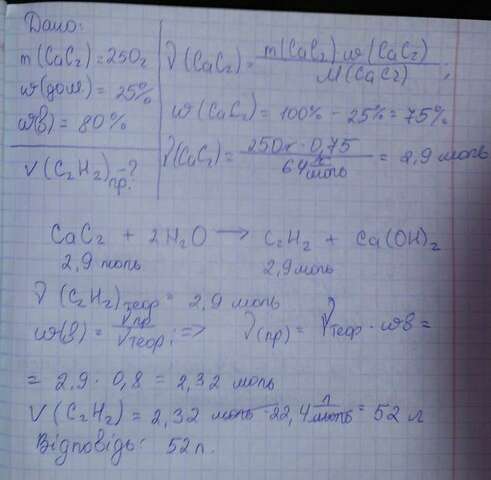 Дано:
m(CaC₂) = 250г
w(дом.) = 25%
w(в) = 80%
V(C₂H₂)пр. - ?
ν(CaC₂) = m(CaC₂)·w(CaC₂) / M(CaC₂) ;
w(CaC₂) = 100% - 25% = 75%
ν(CaC₂) = 250г · 0,75 / 64 г/моль = 2,9 моль
CaC₂ + 2H₂O → C₂H₂ + Ca(OH)₂
2,9 моль 2,9 моль
ν(C₂H₂)теор = 2,9 моль
w(в) = νпр / νтеор ; => ν(пр) = νтеор · wв =
= 2,9 · 0,8 = 2,32 моль
V(C₂H₂) = 2,32 моль · 22,4 л/моль = 52 л
Відповідь: 52 л.